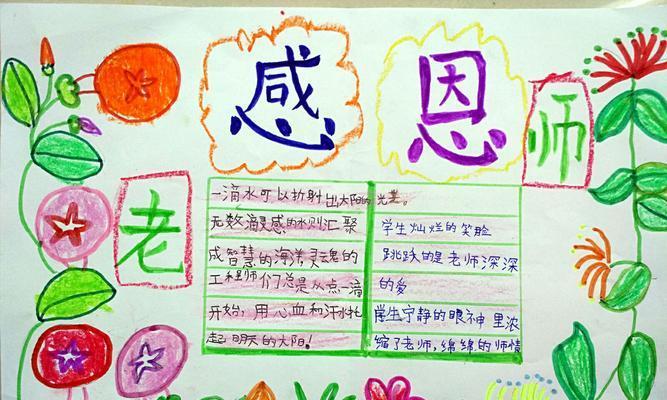 感恩
老师
一滴水可以折射出太阳的光辉。
无数滴灵感的水则汇聚
成智慧的海洋,灵魂的
工程师们总是从点一滴
开始,用心血和汗水托
起明天的太阳!
学生灿烂的笑脸
跳跃的是老师深深
的爱
学生宁静的眼神里浓
缩了老师,绵绵的师情